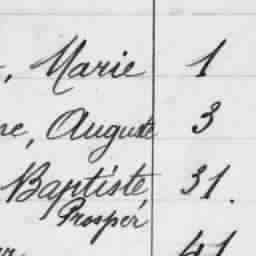 , Marie 1
ne, Auguste 3
Baptiste, 31.
Prosper
41